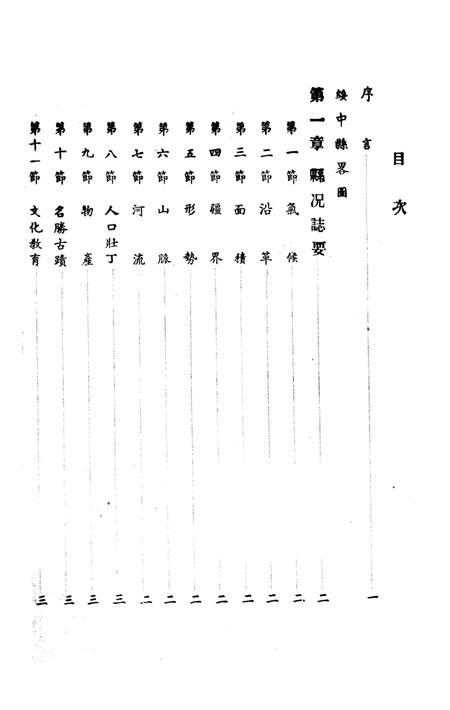 目次
序言……一
綏中縣畧圖
第一章 縣况誌要……二
第一節 氣候……二
第二節 沿革……二
第三節 面積……二
第四節 疆界……二
第五節 形勢……二
第六節 山脈……二
第七節 河流……二
第八節 人口壯丁……三
第九節 物產……三
第十節 名勝古蹟……三
第十一節 文化教育……三